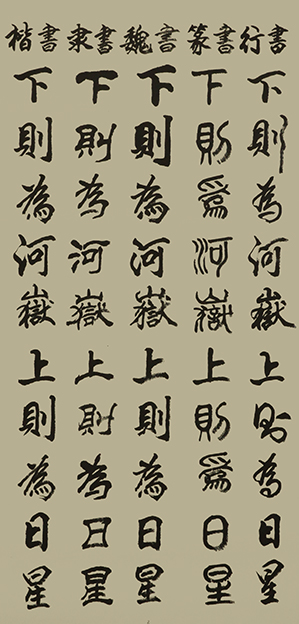 楷書 隶書 魏書 篆書 行書
下則為河嶽上則為日星
下則為河嶽上則為日星
下則為河嶽上則為日星
下則爲河嶽上則爲日星
下則為河嶽上則為日星